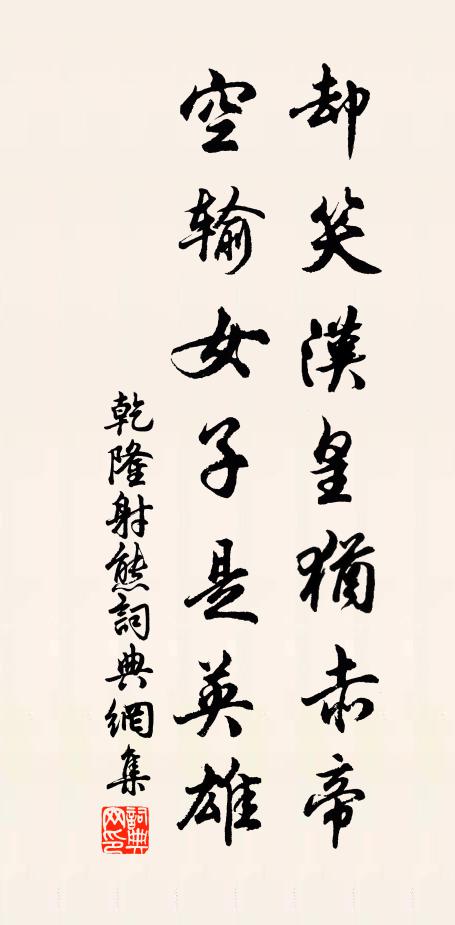 却笑漢皇猶赤帝
空輸女子是英雄
乾隆射熊詞典網集
詞典
网印